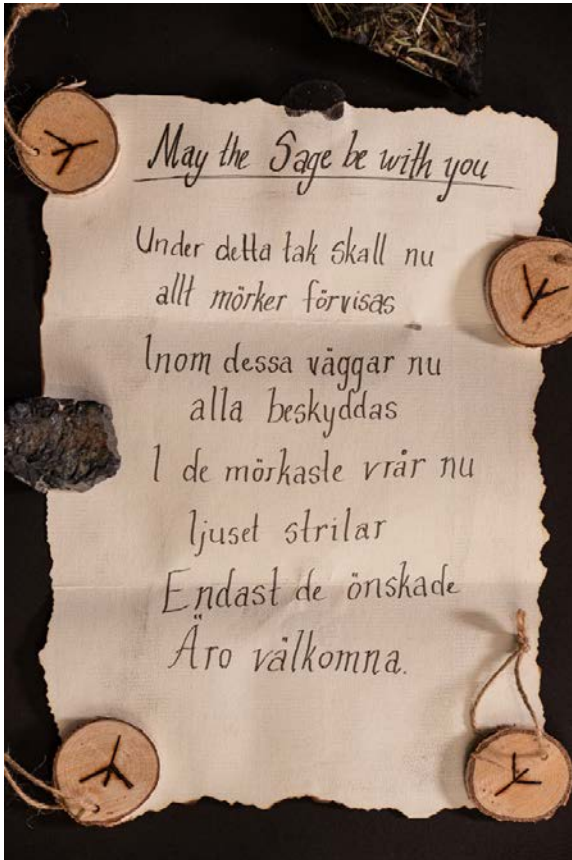 May the Sage be with you
Under detta tak skall nu
allt mörker förvisas
Inom dessa väggar nu
alla beskyddas
I de mörkaste vrår nu
ljuset strilar
Endast de önskade
Äro välkomna.